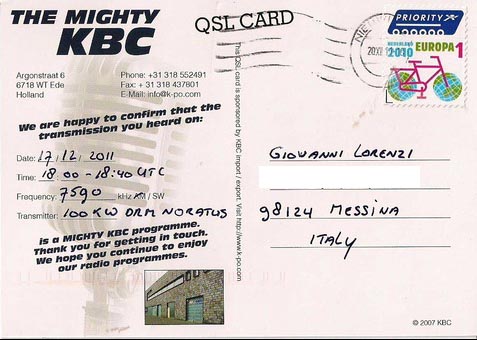 THE MIGHTY
KBC
Argonstraat 6
6718 WT Ede
Holland
Phone: +31 318 552491
Fax: +31 318 437801
E-Mail: info@k-po.com
We are happy to confirm that the
transmission you heard on:
Date: 17/12/2011
Time: 18:00 - 18:40 UTC
Frequency: 7590 kHz AM / SW
Transmitter: 100 KW DRM NORATUS
is a MIGHTY KBC programme.
Thank you for getting in touch.
We hope you continue to enjoy
our radio programmes.
QSL CARD
This QSL card is sponsored by KBC import / export. Visit http://www.k-po.com
PRIORITY
NEDERLAND
2010 EUROPA 1
GIOVANNI LORENZI
98124 MESSINA
ITALY
© 2007 KBC